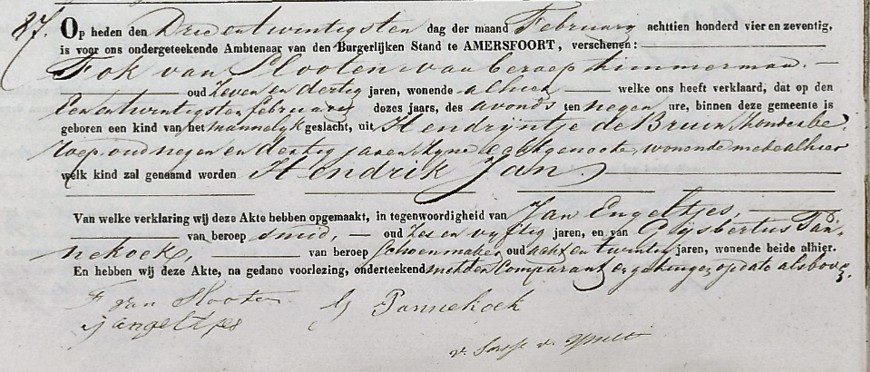 87. Op heden den Drie en twintigsten dag der maand February achttien honderd vier en zeventig,
is voor ons ondergeteekende Ambtenaar van den Burgerlijken Stand te AMERSFOORT, verschenen:
Fok van Slooten van beroep timmerman.
oud zeven en dertig jaren, wonende alhier welke ons heeft verklaard, dat op den
Een en twintigsten february dezes jaars, des avonds ten negen ure, binnen deze gemeente is
geboren een kind van het mannelijk geslacht, uit Hendrijntje de Bruin zonder be-
roep, oud negen en dertig jaren zyne echtgenoote, wonende mede alhier
welk kind zal genaamd worden Hendrik Jan.
Van welke verklaring wij deze Akte hebben opgemaakt, in tegenwoordigheid van Jan Engeltjes,
van beroep smid, oud zes en vyftig jaren, en van Gijsbertus Pan-
nekoek, van beroep schoenmaker oud acht en twintig jaren, wonende beide alhier.
En hebben wij deze Akte, na gedane voorlezing, onderteekend met den Comparant en getuigen op dato als boven.
F van Slooten
J Engeltjes G Pannekoek